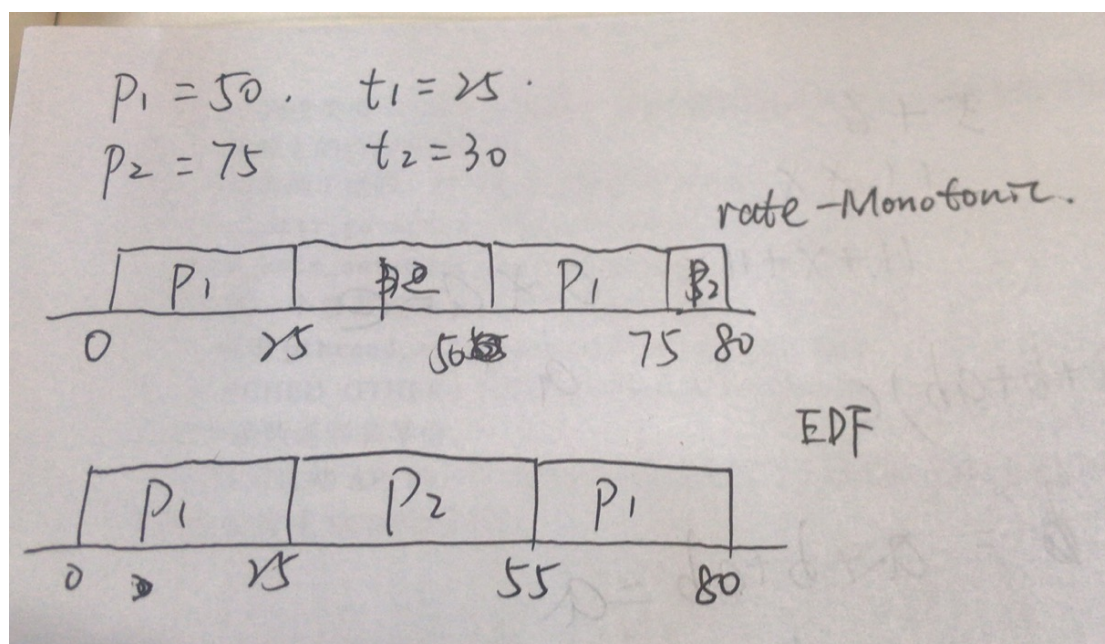 P1 = 50. t1 = 25.
P2 = 75 t2 = 30
rate-Monotonic.
P1 P2 P1 P2
0 25 50 75 80
EDF
P1 P2 P1
0 25 55 80